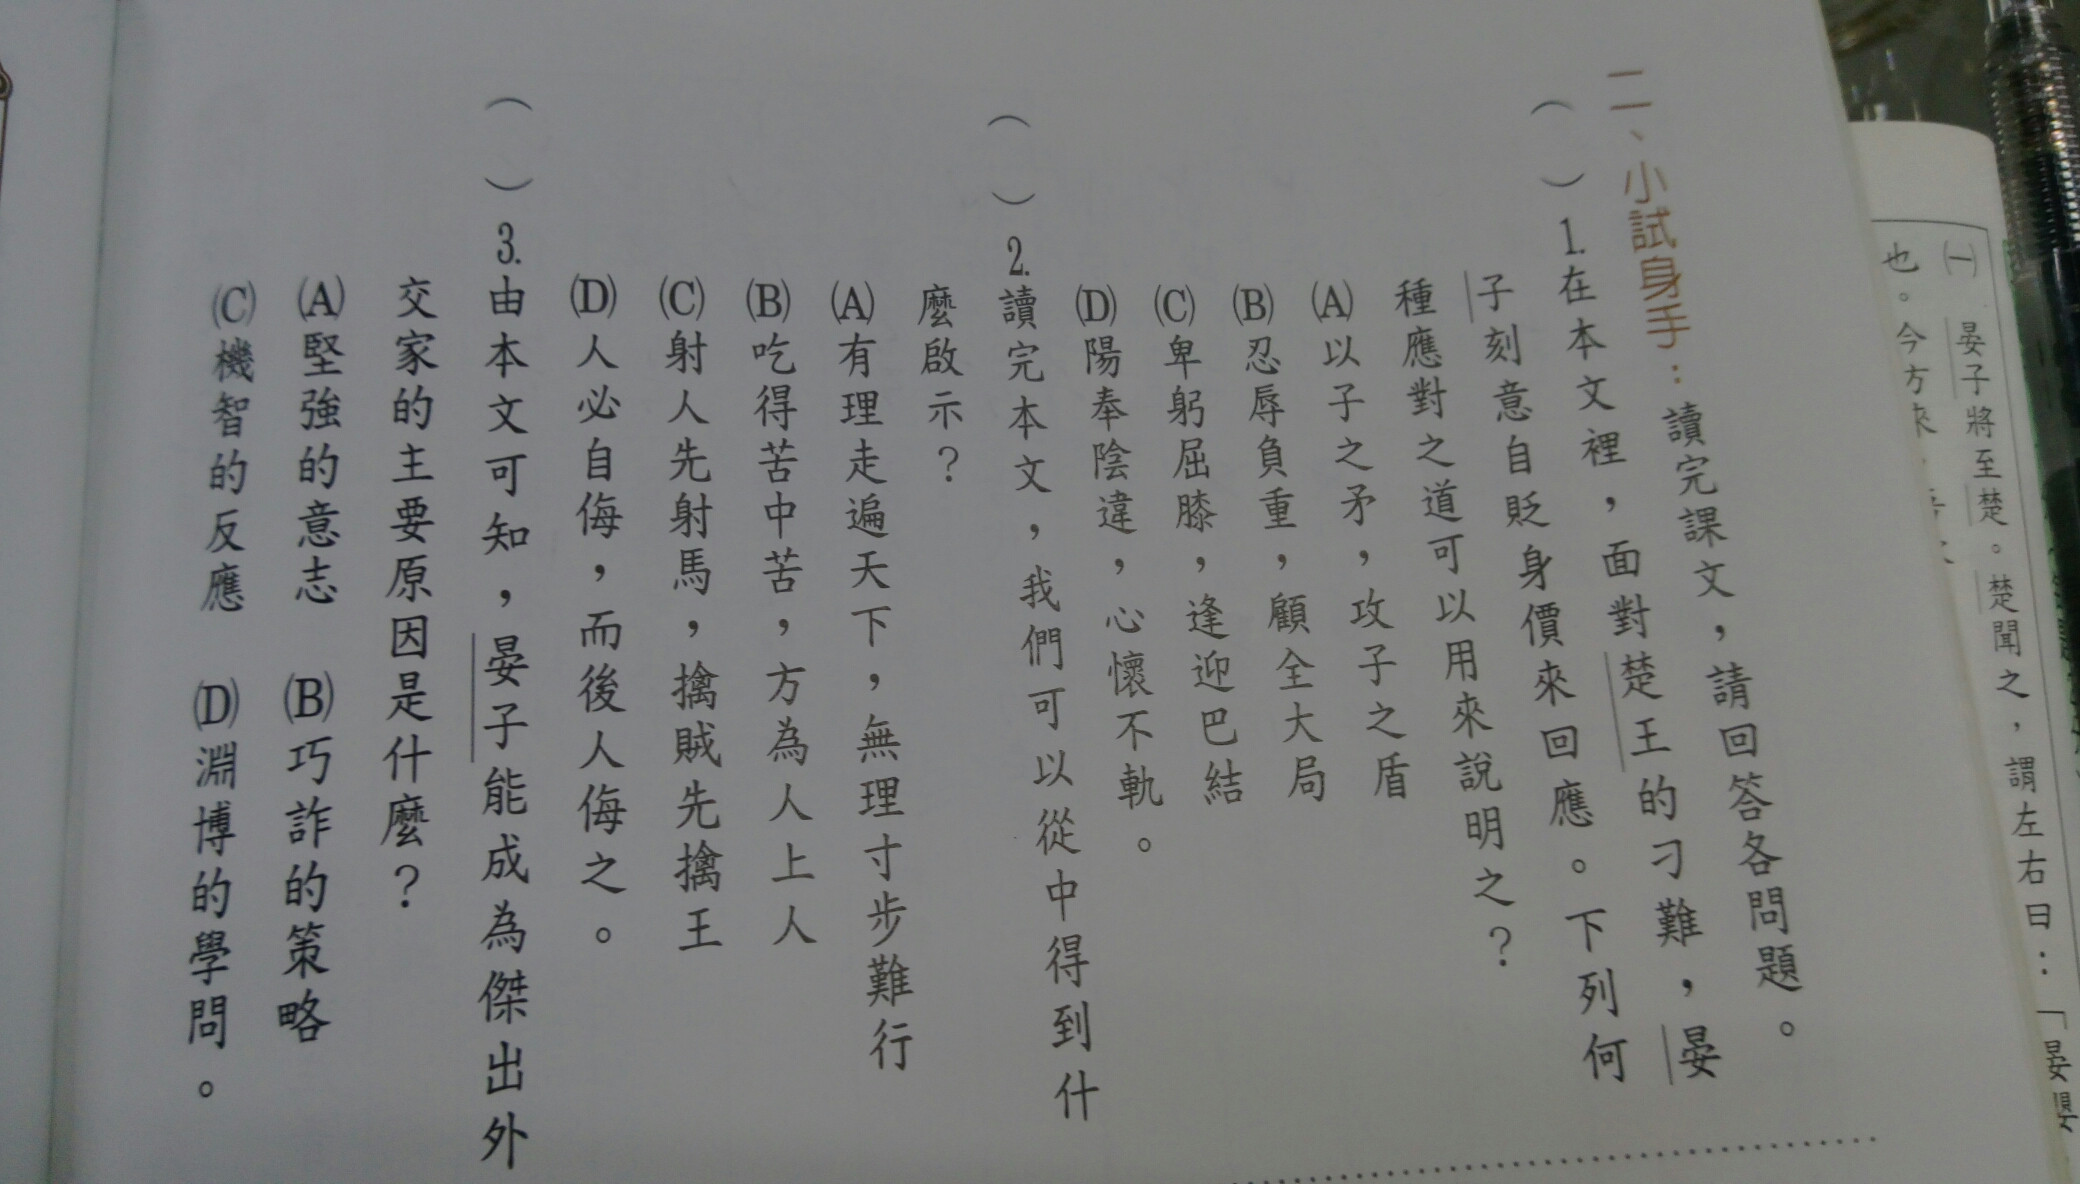 二、小試身手：讀完課文，請回答各問題。
（　）1.在本文裡，面對楚王的刁難，晏
子刻意自貶身價來回應。下列何
種應對之道可以用來說明之？
(A)以子之矛，攻子之盾
(B)忍辱負重，顧全大局
(C)卑躬屈膝，逢迎巴結
(D)陽奉陰違，心懷不軌。
（　）2.讀完本文，我們可以從中得到什
麼啟示？
(A)有理走遍天下，無理寸步難行
(B)吃得苦中苦，方為人上人
(C)射人先射馬，擒賊先擒王
(D)人必自侮，而後人侮之。
（　）3.由本文可知，晏子能成為傑出外
交家的主要原因是什麼？
(A)堅強的意志　(B)巧詐的策略
(C)機智的反應　(D)淵博的學問。
㈠晏子將至楚。楚聞之，謂左右曰：「晏嬰
也。今方來，